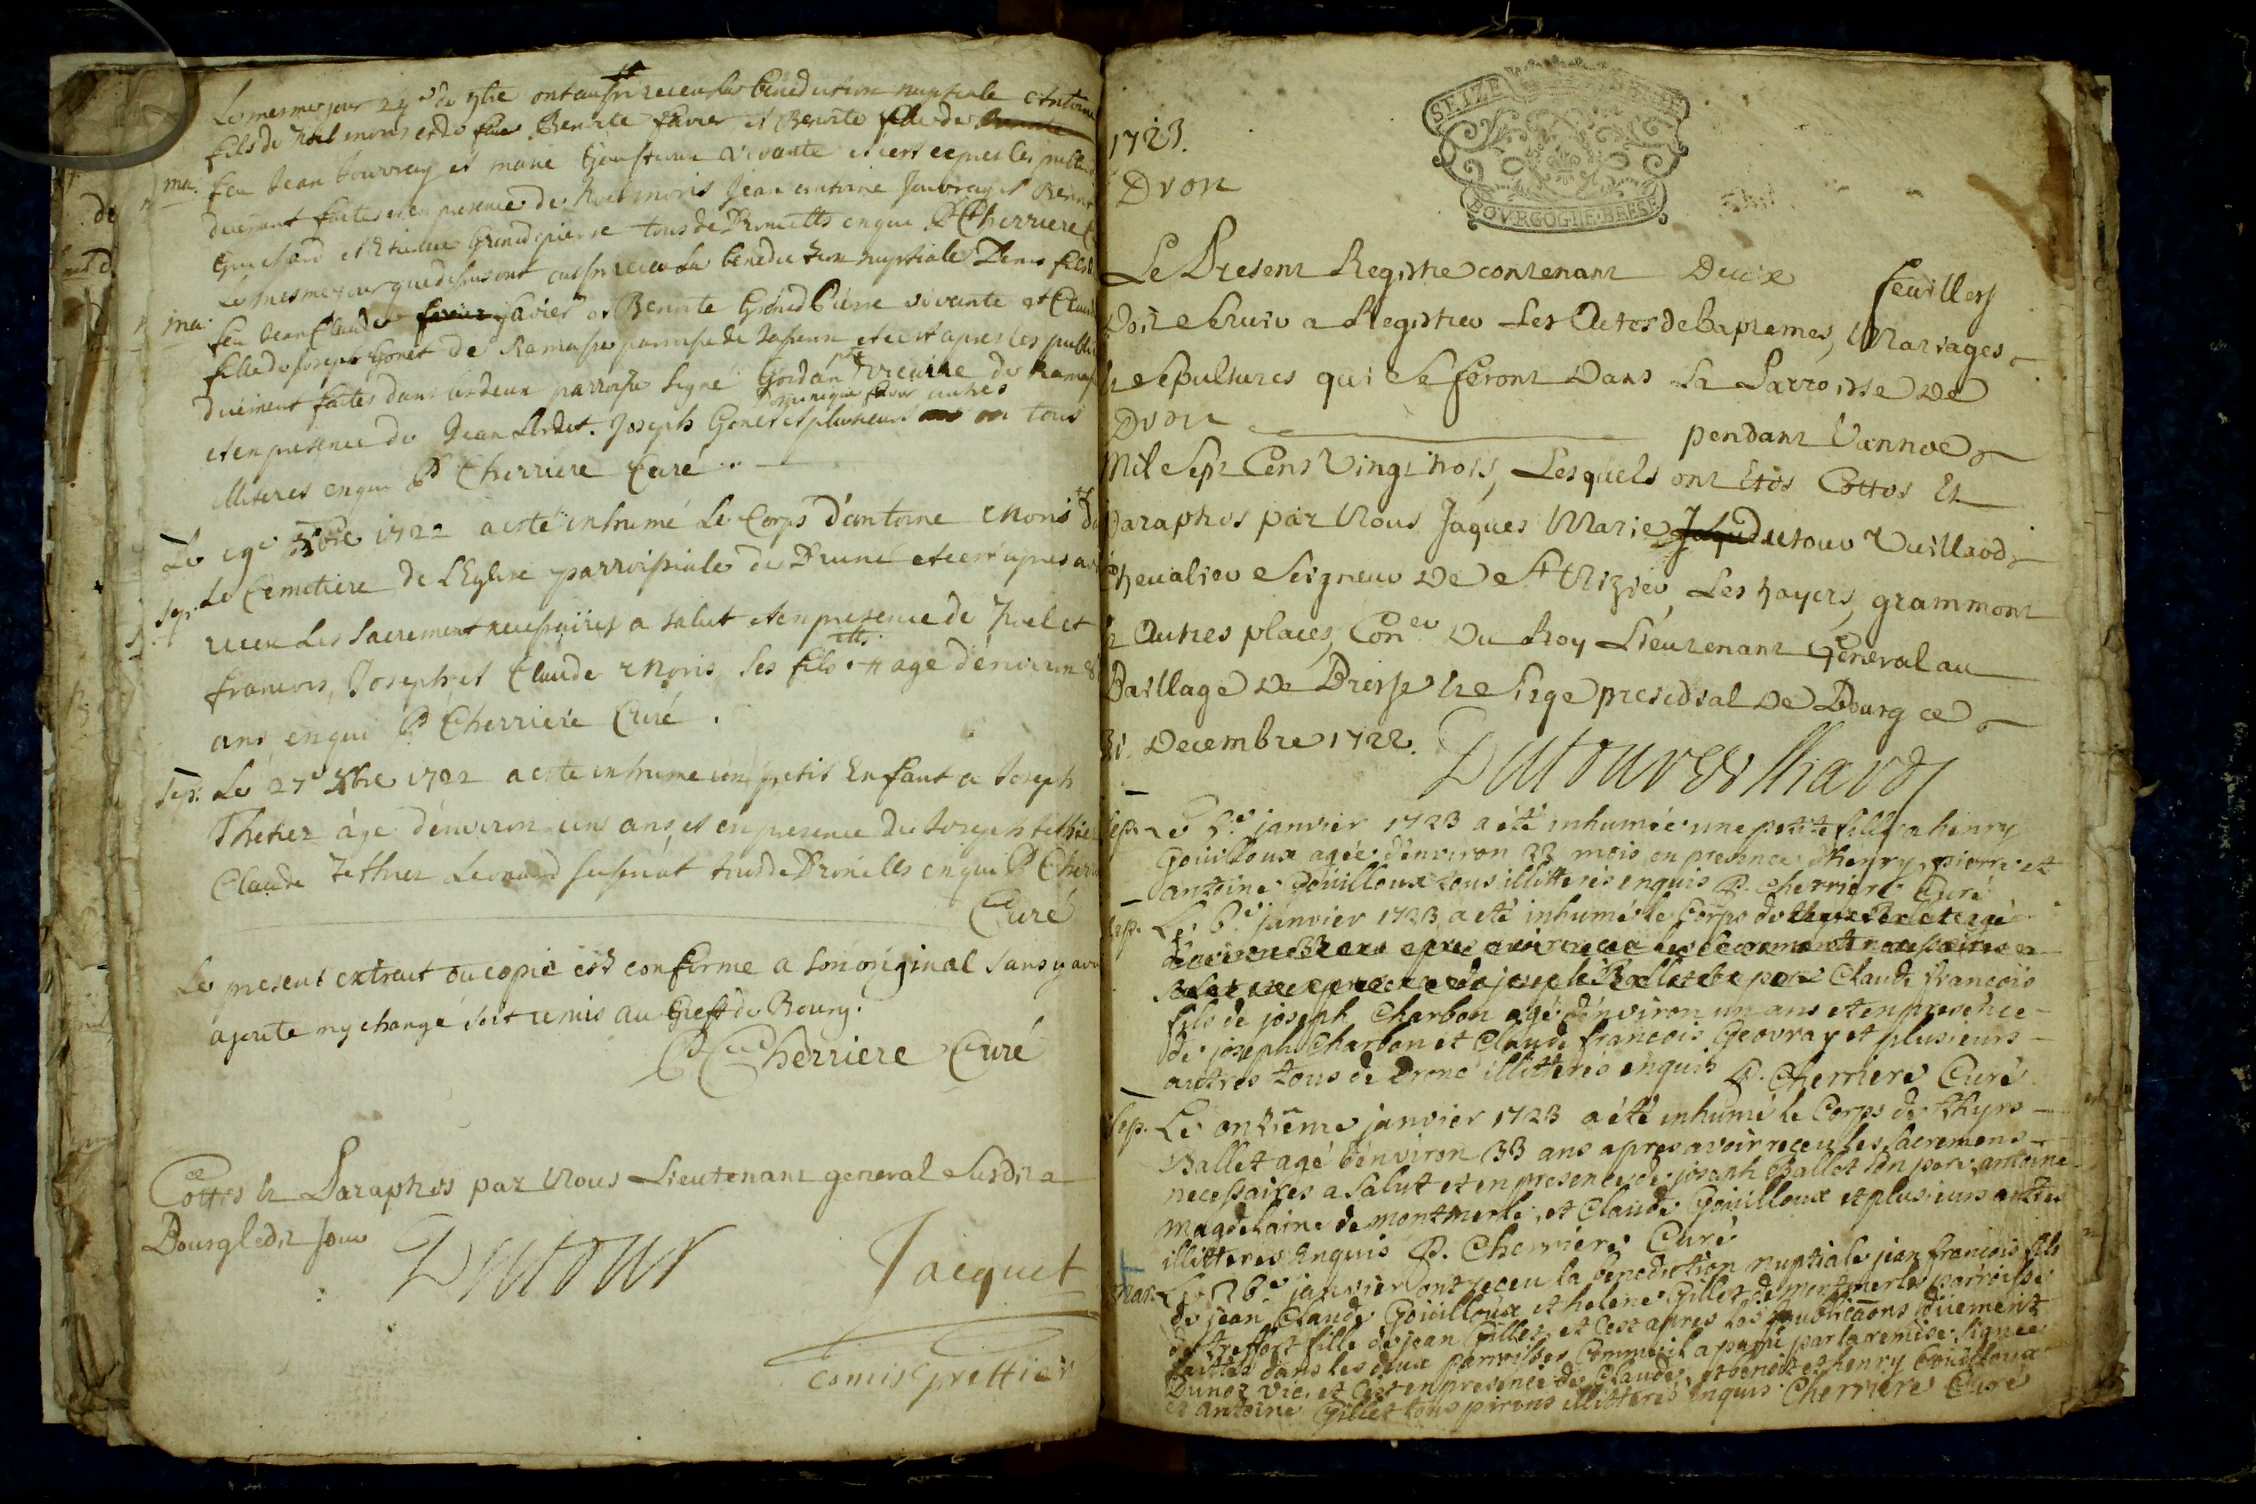 Le mesme jour 24e de 9bre ont aussi receu la bénédiction nuptiale Antoine
fils de Noel moris et de Benoite favier et Benoite fille de
ma. feu Jean Jouvray et marie vivante et cest apres les publi
duëment faites et en presence de Noel moris Jean antoine Jouvray et Benoit
Guichard et Etienne Grandpierre tous de en qui P Cherriere C
Le mesme jour que dessus ont aussi receu la bénédiction nuptiale Denis fils de
ma. feu Jean Claude favier et Benoite Grand Pierre vivante et Claud
fille de Joseph Gonet de Ramasse parroisse de et cest apres les publi
duëment faites dans les deux parroisses signé Gordan vicaire de Ramass
et en presence de Jean Joseph Gonet et plusieurs autres tous
illiteres enquis P Cherriere Curé
Le 19e Xbre 1722 a esté inhumé Le Corps d'antoine moris d
Sep. Le Cemetiere de L'Eglise parroissiale de Drune et cest apres av
receu Les Sacrement necessaires a salut et en presence de Noel et
francois, Joseph et Claude moris ses fils age d'environ 8
ans enqui P Cherriere Curé.
Sep. Le 27e Xbre 1722 a esté inhume un petit Enfant a Joseph
Thetier age d'environ uns ans et en presence de Joseph
Claude Leonard tous de enqui P Cherr
Curé
Le present extrait ou copie est conforme a son original sans y avoir
ajoute ny changé soit remis au Greffe de Bourg.
P Cherriere Curé
Cottés & Paraphés par Nous Lieutenant general Susdit a
Bourg Ledit Jour
Dutour
Jacquet
comis Greffier
SEIZE
BOVRGOGNE·BRESSE
1723.
Dron
Le Present Registre contenant Deux feuillets
Doit Servir a Registrer Les Actes de Baptemes, Mariages
& Sepultures qui Se feront Dans La Parroisse De
Dron pendant L'année
Mil Sept Cens Vingt trois, Lesquels ont Etés Cottés Et
Paraphés par Nous Jaques Marie Dutour Vuillard
Chevalier Seigneur De St Nizier, Les hayers, grammont
& Autres places, Coner Du Roy Lieutenant General au
Baillage De Bresse & Siege presidial De Bourg ce
31. Decembre 1722. Dutourvuilliard
Sep. Le 5e janvier 1723 a été inhumée une petite fille a henry
Goüilloux agée d'environ 22 mois en presence d'henry, pierre et
antoine Goüilloux tous illitterés enquis P. Cherriere Curé
Sep. Le 6e janvier 1723 a eté inhumé le Corps de
Claude francois
fils de joseph Charbon agé d'environ un ans et en presence
de joseph Charbon et Claude francois Geovray et plusieurs
autres tous de Drone illitterés enquis P. Cherriere Curé
Sep. Le onzieme janvier 1723 a été inhumé le Corps de thyrs
Ballet agé d'environ 33 ans apres avoir receu les sacremens
necessaires a salut et en presence de joseph Ballet son pere antoine
magdelaine de montmerle, et Claude Goüilloux et plusieurs autres
illitterés Enquis P. Cherriere Curé
mar. Le 26e janvier ont receu la benediction nuptiale jean francois fils
de jean Claude Goüilloux et helene Gillet de montmerle parroisse
de treffort fille de jean Gillet, et Cest apres les publications düement
faittes dans les deux parroisses Comme il a paru par la remise signée
Dunoz vic. et Cest en presence de Claude, et benoit et henry Goüilloux
et antoine Gillet tous illitterés Enquis Cherriere Curé